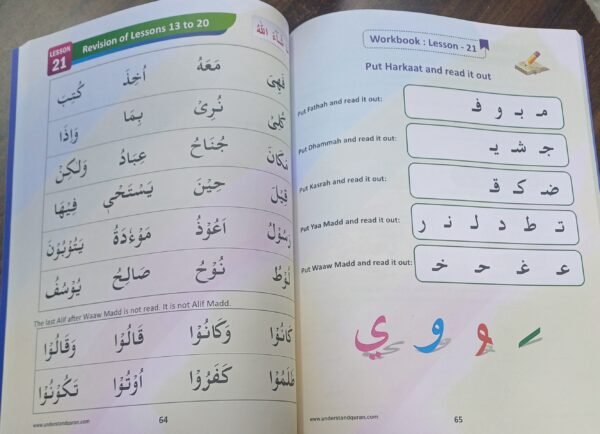 LESSON
21
Revision of Lessons 13 to 20
فَهِىَ مَعَهُ اُخِذَ كُتِبَ
نُرِىْ بِمَا وَاِذَا
فَكَانَ جُنَاحُ عِبَادُ وَلٰكِنْ
قِيْلَ حِيْنَ يَسْتَحْىٖ فِيْهَا
رَسُوْلُ اَعُوْذُ مَوْءٗدَةُ يَتُوْبُوْنَ
لُوْطُ نُوْحُ صَالِحُ يُوْسُفُ
The last Alif after Waaw Madd is not read. It is not Alif Madd.
كَانُوْا وَكَانُوْا قَالُوْا وَقَالُوْا
ظَلَمُوْا كَفَرُوْا اُوْتُوْا تَكُوْنُوْا
www.understandquran.com
64
Workbook : Lesson - 21
Put Harkaat and read it out
Put Fathah and read it out:
مـ بـ و فـ
Put Dhammah and read it out:
جـ شـ يـ
Put Kasrah and read it out:
ضـ كـ قـ
Put Yaa Madd and read it out:
تـ طـ د لـ نـ ر
Put Waaw Madd and read it out:
عـ غـ حـ خـ
ي و
www.understandquran.com
65